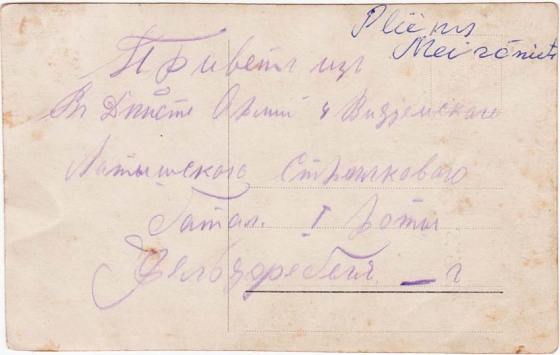 Plēens
Meirōniets
Привет из
Въ Дѣйств Армiи 4 Видземскаго
Латышского Стрѣлкового
Батал. I роты
г